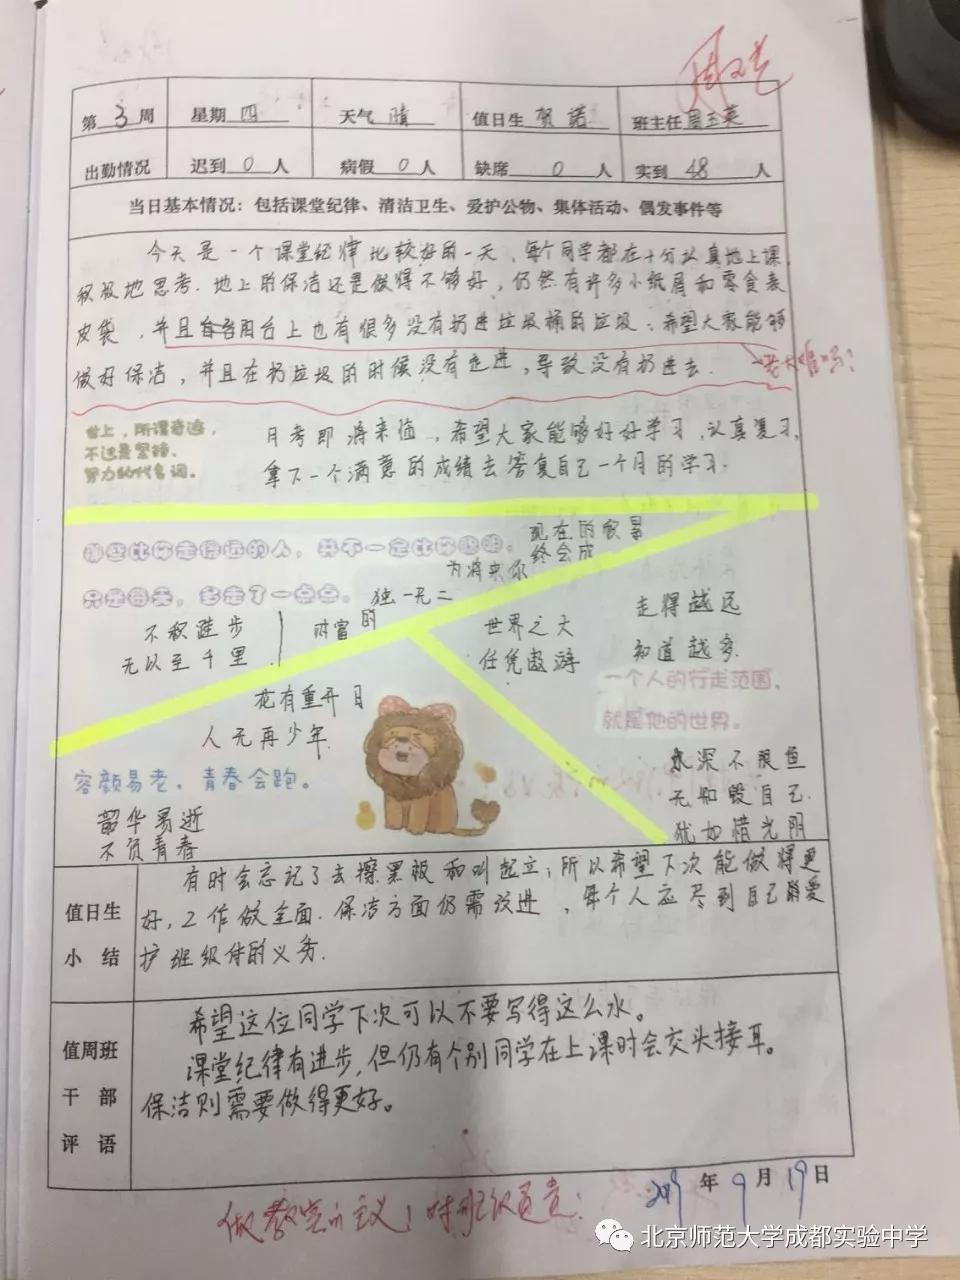 第 3 周 星期 四 天气 晴 值日生 贺诺 班主任 周玉英
出勤情况 迟到 0 人 病假 0 人 缺席 0 人 实到 48 人
当日基本情况：包括课堂纪律、清洁卫生、爱护公物、集体活动、偶发事件等
今天是一个课堂纪律比较好的一天，每个同学都在十分认真地上课，
积极地思考．地上的保洁还是做得不够好，仍然有许多小纸屑和零食表
皮袋，并且阳台上也有很多没有扔进垃圾桶的垃圾．希望大家能够
做好保洁，并且在扔垃圾的时候没有走进，导致没有扔进去．
世上，所谓奇迹，
不过是坚持、
努力的代名词。
月考即将来临，希望大家能够好好学习，认真复习，
拿下一个满意的成绩去答复自己一个月的学习．
那些比你走得远的人，并不一定比你聪明，
只是每天，多走了一点点。
现在的积累
终会成
为将来你
独一无二
的
财富
不积跬步
无以至千里
世界之大
任凭遨游
走得越远
知道越多．
一个人的行走范围，
就是他的世界。
花有重开日
人无再少年．
容颜易老，青春会跑。
韶华易逝
不负青春
水深不限鱼
无知毁自己．
犹如惜光阴
值日生
小 结
有时会忘记了去擦黑板和叫起立；所以希望下次能做得更
好，工作做全面．保洁方面仍需改进，每个人应尽到自己的爱
护班级体的义务．
值周班
干 部
评 语
希望这位同学下次可以不要写得这么水。
课堂纪律有进步，但仍有个别同学在上课时会交头接耳。
保洁则需要做得更好。
2019 年 9 月 19 日
北京师范大学成都实验中学